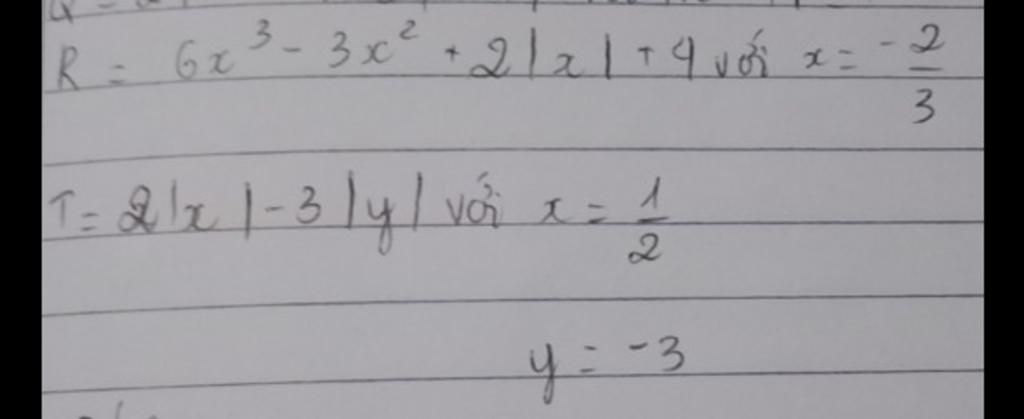 R = 6x³ - 3x² + 2|x| + 4 với x = -2/3
T = 2|x| - 3|y| với x = 1/2
y = -3